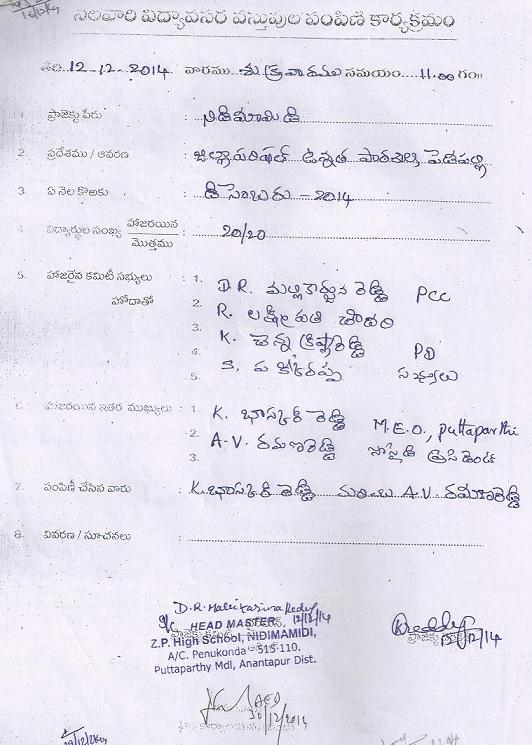 నెలవారి విద్యావసర వస్తువుల పంపిణి కార్యక్రమం
12-12-2014 వారము శుక్రవారము సమయం 11.00 గం॥
1. ప్రాజెక్టు పేరు : నిడిమామిడి
2. ప్రదేశము / ఆవరణ : జిల్లాపరిషత్ ఉన్నత పాఠశాల పెడపల్లి
3. ఏ నెల కొఱకు : డిసెంబరు - 2014
4. విద్యార్థుల సంఖ్య హాజరయిన / మొత్తము : 20/20
5. హాజరైన కమిటీ సభ్యులు హోదాతో :
1. D.R. మల్లికార్జున రెడ్డి PCC
2. R. లక్ష్మీపతి
3. K. చెన్న క్రిష్ణారెడ్డి PD
4. సభ్యులు
5.
6. హాజరయిన ఇతర ముఖ్యులు : 1. K. భాస్కర్ రెడ్డి M.E.O., Puttaparthi
2. A.V. రమణారెడ్డి ప్రెసిడెంట్
3.
7. పంపిణీ చేసిన వారు : K. భాస్కర్ రెడ్డి మరియు A.V. రమణారెడ్డి
8. వివరణ / సూచనలు :
D.R. Mallikarjuna Reddy
I/C HEAD MASTER, 12/12/14
Z.P. High School, NIDIMAMIDI,
A/C. Penukonda - 515-110.
Puttaparthy Mdl, Anantapur Dist.
12/12/14